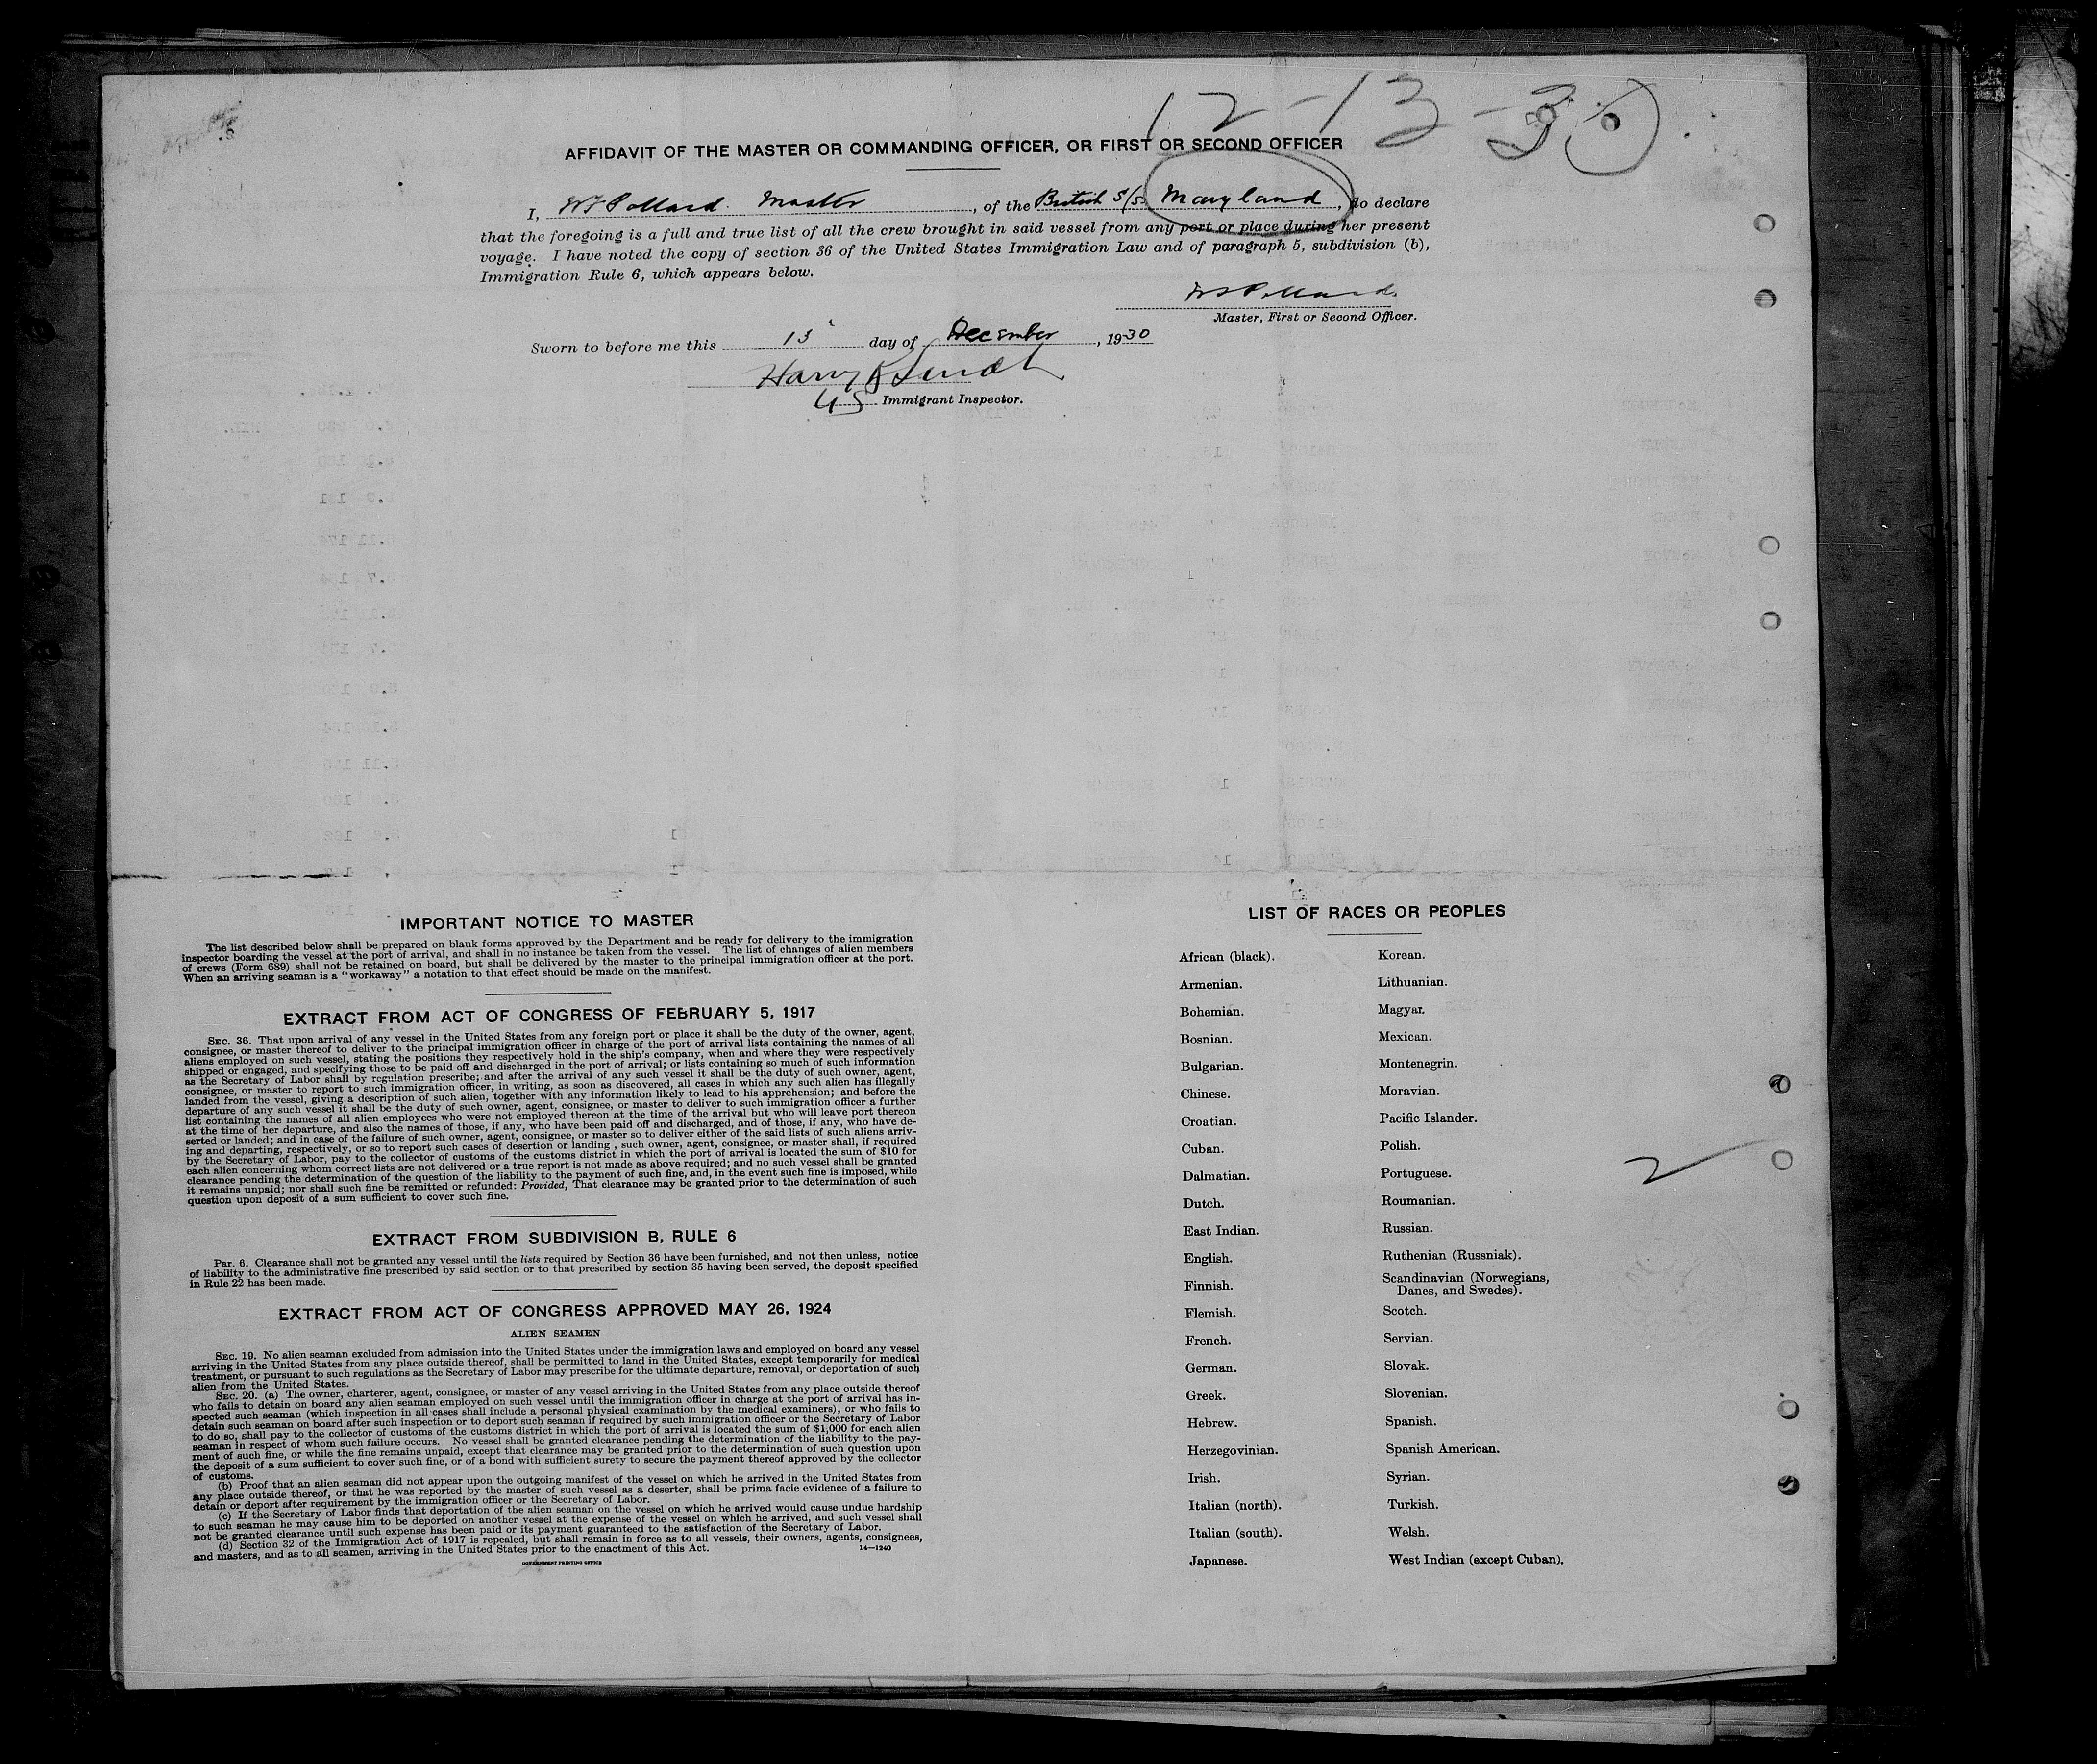 12-13-30
AFFIDAVIT OF THE MASTER OR COMMANDING OFFICER, OR FIRST OR SECOND OFFICER
I, W Pollard Master, of the British S/S Maryland, do declare
that the foregoing is a full and true list of all the crew brought in said vessel from any port or place during her present
voyage. I have noted the copy of section 36 of the United States Immigration Law and of paragraph 5, subdivision (b),
Immigration Rule 6, which appears below.
Pollard
Master, First or Second Officer.
Sworn to before me this 13 day of December, 1930
Harry
US Immigrant Inspector.
IMPORTANT NOTICE TO MASTER
The list described below shall be prepared on blank forms approved by the Department and be ready for delivery to the immigration
inspector boarding the vessel at the port of arrival, and shall in no instance be taken from the vessel. The list of changes of alien members
of crews (Form 689) shall not be retained on board, but shall be delivered by the master to the principal immigration officer at the port.
When an arriving seaman is a "workaway" a notation to that effect should be made on the manifest.
EXTRACT FROM ACT OF CONGRESS OF FEBRUARY 5, 1917
SEC. 36. That upon arrival of any vessel in the United States from any foreign port or place it shall be the duty of the owner, agent,
consignee, or master thereof to deliver to the principal immigration officer in charge of the port of arrival lists containing the names of all
aliens employed on such vessel, stating the positions they respectively hold in the ship's company, when and where they were respectively
shipped or engaged, and specifying those to be paid off and discharged in the port of arrival; or lists containing so much of such information
as the Secretary of Labor shall by regulation prescribe; and after the arrival of any such vessel it shall be the duty of such owner, agent,
consignee, or master to report to such immigration officer, in writing, as soon as discovered, all cases in which any such alien has illegally
landed from the vessel, giving a description of such alien, together with any information likely to lead to his apprehension; and before the
departure of any such vessel it shall be the duty of such owner, agent, consignee, or master to deliver to such immigration officer a further
list containing the names of all alien employees who were not employed thereon at the time of the arrival but who will leave port thereon
at the time of her departure, and also the names of those, if any, who have been paid off and discharged, and of those, if any, who have de-
serted or landed; and in case of the failure of such owner, agent, consignee, or master so to deliver either of the said lists of such aliens arriv-
ing and departing, respectively, or so to report such cases of desertion or landing, such owner, agent, consignee, or master shall, if required
by the Secretary of Labor, pay to the collector of customs of the customs district in which the port of arrival is located the sum of $10 for
each alien concerning whom correct lists are not delivered or a true report is not made as above required; and no such vessel shall be granted
clearance pending the determination of the question of the liability to the payment of such fine, and, in the event such fine is imposed, while
it remains unpaid; nor shall such fine be remitted or refunded: Provided, That clearance may be granted prior to the determination of such
question upon deposit of a sum sufficient to cover such fine.
EXTRACT FROM SUBDIVISION B, RULE 6
Par. 6. Clearance shall not be granted any vessel until the lists required by Section 36 have been furnished, and not then unless, notice
of liability to the administrative fine prescribed by said section or to that prescribed by section 35 having been served, the deposit specified
in Rule 22 has been made.
EXTRACT FROM ACT OF CONGRESS APPROVED MAY 26, 1924
ALIEN SEAMEN
SEC. 19. No alien seaman excluded from admission into the United States under the immigration laws and employed on board any vessel
arriving in the United States from any place outside thereof, shall be permitted to land in the United States, except temporarily for medical
treatment, or pursuant to such regulations as the Secretary of Labor may prescribe for the ultimate departure, removal, or deportation of such
alien from the United States.
SEC. 20. (a) The owner, charterer, agent, consignee, or master of any vessel arriving in the United States from any place outside thereof
who fails to detain on board any alien seaman employed on such vessel until the immigration officer in charge at the port of arrival has in-
spected such seaman (which inspection in all cases shall include a personal physical examination by the medical examiners), or who fails to
detain such seaman on board after such inspection or to deport such seaman if required by such immigration officer or the Secretary of Labor
to do so, shall pay to the collector of customs of the customs district in which the port of arrival is located the sum of $1,000 for each alien
seaman in respect of whom such failure occurs. No vessel shall be granted clearance pending the determination of the liability to the pay-
ment of such fine, or while the fine remains unpaid, except that clearance may be granted prior to the determination of such question upon
the deposit of a sum sufficient to cover such fine, or of a bond with sufficient surety to secure the payment thereof approved by the collector
of customs.
(b) Proof that an alien seaman did not appear upon the outgoing manifest of the vessel on which he arrived in the United States from
any place outside thereof, or that he was reported by the master of such vessel as a deserter, shall be prima facie evidence of a failure to
detain or deport after requirement by the immigration officer or the Secretary of Labor.
(c) If the Secretary of Labor finds that deportation of the alien seaman on the vessel on which he arrived would cause undue hardship
to such seaman he may cause him to be deported on another vessel at the expense of the vessel on which he arrived, and such vessel shall
not be granted clearance until such expense has been paid or its payment guaranteed to the satisfaction of the Secretary of Labor.
(d) Section 32 of the Immigration Act of 1917 is repealed, but shall remain in force as to all vessels, their owners, agents, consignees,
and masters, and as to all seamen, arriving in the United States prior to the enactment of this Act. 14—1240
GOVERNMENT PRINTING OFFICE
LIST OF RACES OR PEOPLES
African (black). Korean.
Armenian. Lithuanian.
Bohemian. Magyar.
Bosnian. Mexican.
Bulgarian. Montenegrin.
Chinese. Moravian.
Croatian. Pacific Islander.
Cuban. Polish.
Dalmatian. Portuguese.
Dutch. Roumanian.
East Indian. Russian.
English. Ruthenian (Russniak).
Finnish. Scandinavian (Norwegians,
Danes, and Swedes).
Flemish. Scotch.
French. Servian.
German. Slovak.
Greek. Slovenian.
Hebrew. Spanish.
Herzegovinian. Spanish American.
Irish. Syrian.
Italian (north). Turkish.
Italian (south). Welsh.
Japanese. West Indian (except Cuban).
2